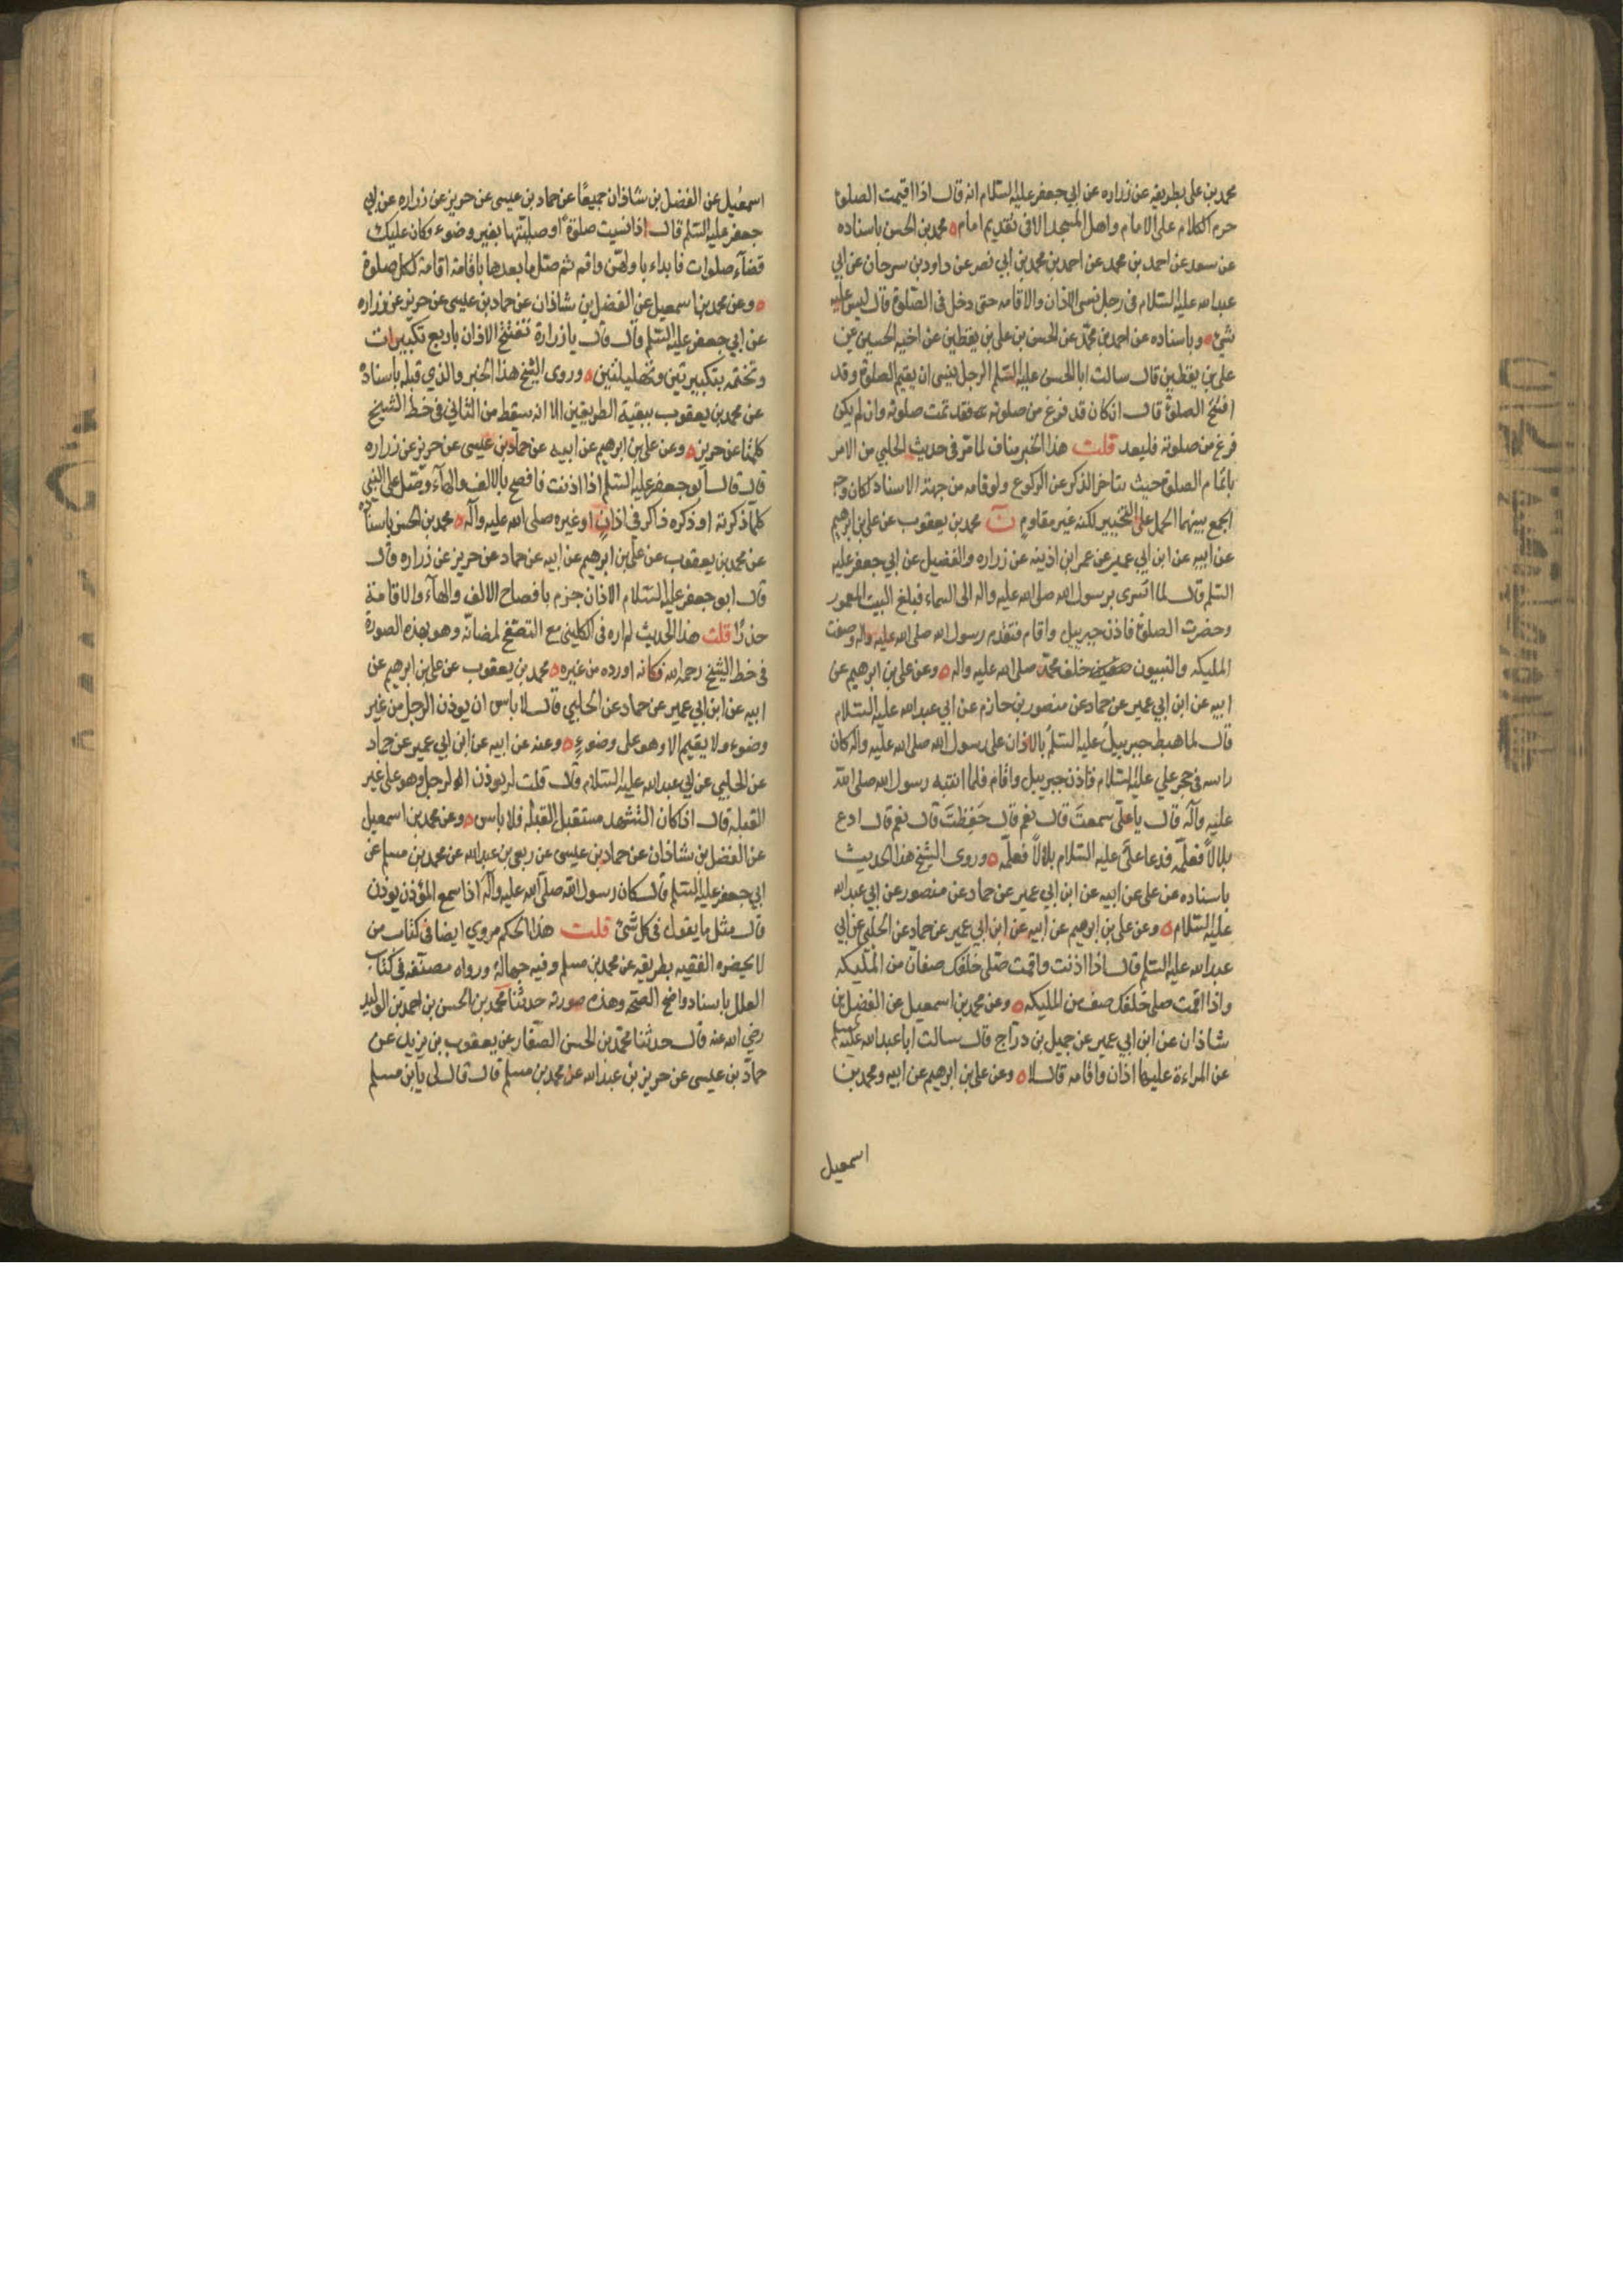 محمد بن علي بطريقه عن زراره عن ابي جعفر عليه السلام انه قال اذا اقيمت الصلوة
حرم الكلام على الامام واهل المسجد الا في تقديم امام ٥ محمد بن الحسن باسناده
عن سعد عن احمد بن محمد عن احمد بن محمد بن أبي نصر عن داود بن سرحان عن ابي
عبد الله عليه السلام في رجل نسي الاذان والاقامه حتى دخل في الصلوة قال ليس عليه
شئ ٥ وباسناده عن احمد بن محمد عن الحسن بن علي بن يقطين عن اخيه الحسين عن
علي بن يقطين قال سالت ابا الحسن عليه السلم الرجل ينسى ان يقيم الصلوة وقد
افتتح الصلوة قال ان كان قد فرغ من صلوته فقد تمت صلوته وان لم يكن
فرغ من صلوته فليعد قلت هذا الخبر مناف لما مر في حديث الحلبي من الامر
باتمام الصلوة حيث يتاخر الذكر عن الركوع ولو قاومه من جهة الاسناد لكان وجه
الجمع بينهما الحمل على التخيير لكنه غير مقاوم ن محمد بن يعقوب عن علي بن ابرهيم
عن ابيه عن ابن ابي عمير عن عمر ابن اذينه عن زراره والفضيل عن ابي جعفر عليه
السلم قال لما اسرى برسول الله صلى الله عليه واله الى السماء فبلغ البيت المعمور
وحضرت الصلوة فاذن جبرييل واقام فتقدم رسول الله صلى الله عليه واله وصفت
المليكه والنبيون خلف محمد صلى الله عليه واله ٥ وعن علي بن ابرهيم عن
ابيه عن ابن ابي عمير عن حماد عن منصور بن حازم عن ابي عبد الله عليه السلام
قال لما هبط جبرييل عليه السلم بالاذان على رسول الله صلى الله عليه واله كان
راسه في حجر علي عليه السلام فاذن جبرييل واقام فلما انتبه رسول الله صلى الله
عليه وآله قال يا علي سمعت قال نعم قال حفظت قال نعم قال ادع
بلالاً فعلمه فدعا علي عليه السلام بلالاً فعلمه ٥ وروى الشيخ هذا الحديث
باسناده عن علي عن ابيه عن ابن ابي عمير عن حماد عن منصور عن ابي عبد الله
عليه السلام ٥ وعن علي بن ابرهيم عن ابيه عن ابن ابي عمير عن حماد عن الحلبي عن ابي
عبد الله عليه السلم قال اذا اذنت واقمت صلى خلفك صفان من المليكه
واذا اقمت صلى خلفك صف من المليكه ٥ وعن محمد بن اسمعيل عن الفضل بن
شاذان عن ابن ابي عمير عن جميل بن دراج قال سالت ابا عبد الله عليه السلم
عن المراءة عليها اذان واقامه قال لا ٥ وعن علي بن ابرهيم عن ابيه ومحمد بن
اسمعيل
اسمعيل عن الفضل بن شاذان جميعًا عن حماد بن عيسى عن حريز عن زراره عن ابي
جعفر عليه السلم قال اذا نسيت صلوة او صليتها بغير وضوء وكان عليك
قضآء صلوات فابداء باولهن واقم ثم صل ما بعدها باقامة اقامة لكل صلوة
٥ وعن محمد بن اسمعيل عن الفضل بن شاذان عن حماد بن عيسى عن حريز عن زراره
عن ابي جعفر عليه السلم قال قال يا زرارة تفتتح الاذان باربع تكبيرات
وتختمه بتكبيرتين وتهليلتين ٥ وروى الشيخ هذا الخبر والذي قبله باسناده
عن محمد بن يعقوب ببقية الطريقين الا انه سقط من الثاني في خط الشيخ
كلمتا عن حريز ٥ وعن علي بن ابرهيم عن ابيه عن حماد بن عيسى عن حريز عن زراره
قال قال أبو جعفر عليه السلم اذا اذنت فافصح بالالف والهآء وصل على النبي
كلما ذكرته او ذكره ذاكر في اذان او غيره صلى الله عليه وآله ٥ محمد بن الحسن باسناده
عن محمد بن يعقوب عن علي بن ابرهيم عن ابيه عن حماد عن حريز عن زراره قال
قال ابو جعفر عليه السلام الاذان جزم بافصاح الالف والهآء والاقامة
حدرًا قلت هذا الحديث لم اره في الكليني مع التصفح لمضانه وهو بهذه الصورة
في خط الشيخ رحمه الله فكانه اورده من غيره ٥ محمد بن يعقوب عن علي بن ابرهيم عن
ابيه عن ابن ابي عمير عن حماد عن الحلبي قال لا باس ان يوذن الرجل من غير
وضوء ولا يقيم الا وهو على وضوءٍ ٥ وعنه عن ابيه عن ابن ابي عمير عن حماد
عن الحلبي عن ابي عبد الله عليه السلام قال قلت له يوذن الرجل وهو على غير
القبله قال اذا كان التشهد مستقبل القبلة فلا باس ٥ وعن محمد بن اسمعيل
عن الفضل بن شاذان عن حماد بن عيسى عن ربعي بن عبد الله عن محمد بن مسلم عن
ابي جعفر عليه السلم قال كان رسول الله صلى الله عليه وآله اذا سمع المؤذن يوذن
قال مثل ما يقول في كل شئ قلت هذا الحكم مروي ايضا في كتاب من
لا يحضره الفقيه بطريقه عن محمد بن مسلم وفيه جهالة ورواه مصنفه في كتاب
العلل باسناد واضح الصحة وهذه صورته حدثنا محمد بن الحسن بن احمد بن الوليد
رضي الله عنه قال حدثنا محمد بن الحسن الصفار عن يعقوب بن يزيد عن
حماد بن عيسى عن حريز بن عبد الله عن محمد بن مسلم قال قال لي يا بن مسلم